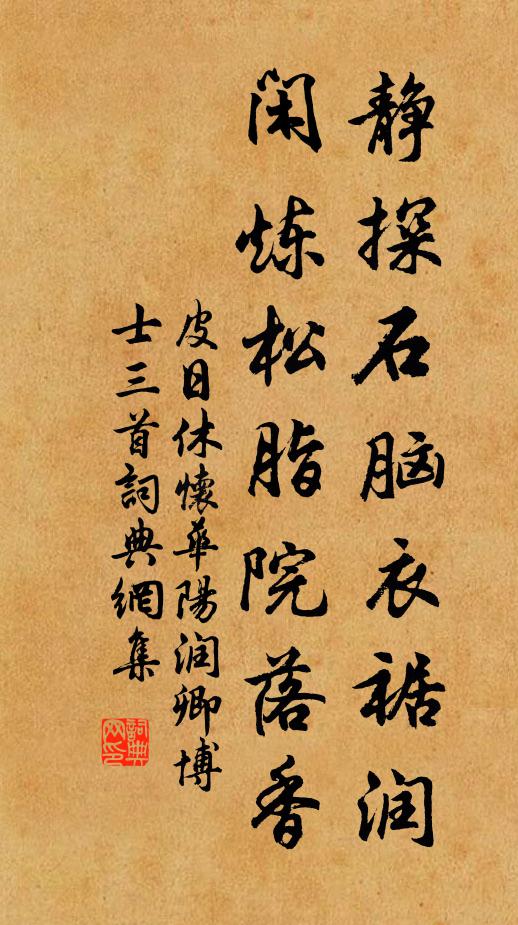 静探石脑衣裾润
闲炼松脂院落香
皮日休懷華陽润卿博
士三首詞典網集
詞典网印